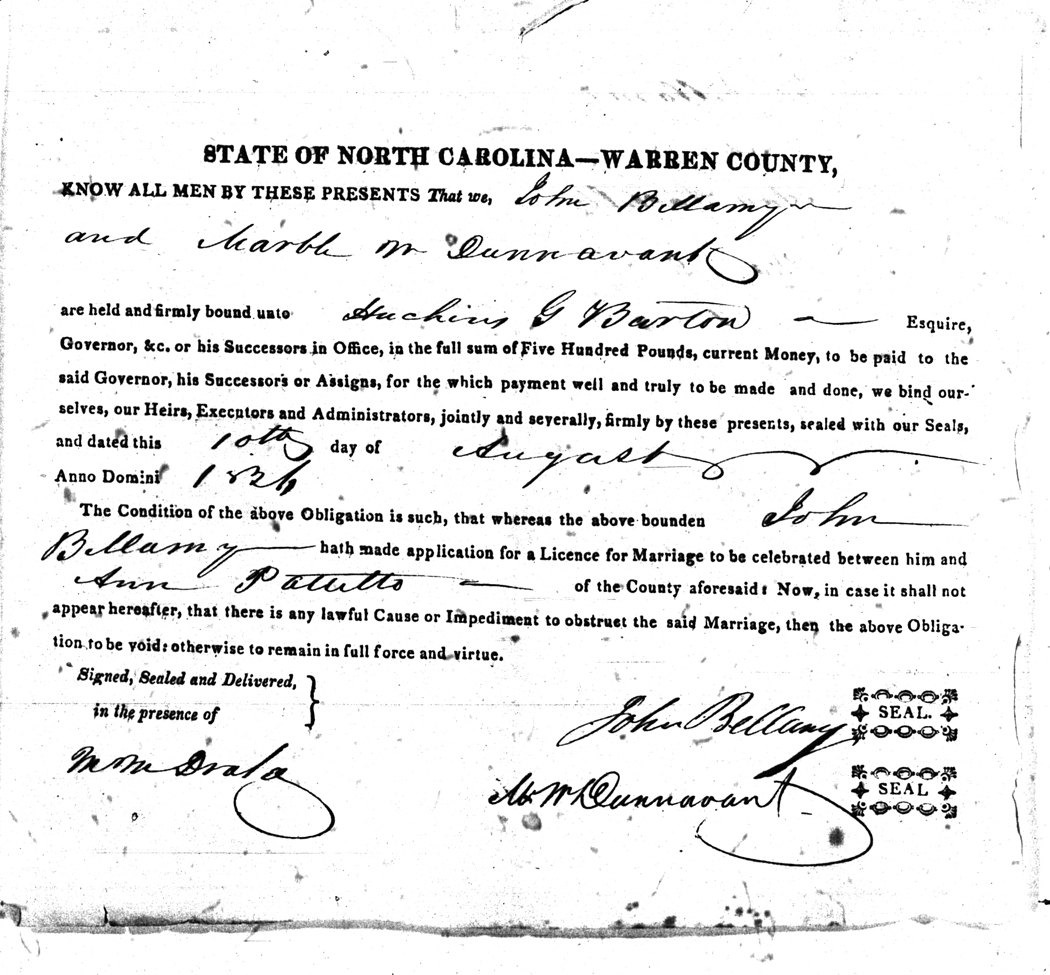 STATE OF NORTH CAROLINA—WARREN COUNTY,
KNOW ALL MEN BY THESE PRESENTS That we, John Bellamy
and Marble W Dunnavant
are held and firmly bound unto Huchins G Burton Esquire,
Governor, &c. or his Successors in Office, in the full sum of Five Hundred Pounds, current Money, to be paid to the
said Governor, his Successors or Assigns, for the which payment well and truly to be made and done, we bind our-
selves, our Heirs, Executors and Administrators, jointly and severally, firmly by these presents, sealed with our Seals,
and dated this 10th day of August
Anno Domini 1826
The Condition of the above Obligation is such, that whereas the above bounden John
Bellamy hath made application for a Licence for Marriage to be celebrated between him and
Ann of the County aforesaid: Now, in case it shall not
appear hereafter, that there is any lawful Cause or Impediment to obstruct the said Marriage, then the above Obliga-
tion to be void: otherwise to remain in full force and virtue.
Signed, Sealed and Delivered,
in the presence of
John Bellamy SEAL.
M M Drake
M W Dunnavant SEAL